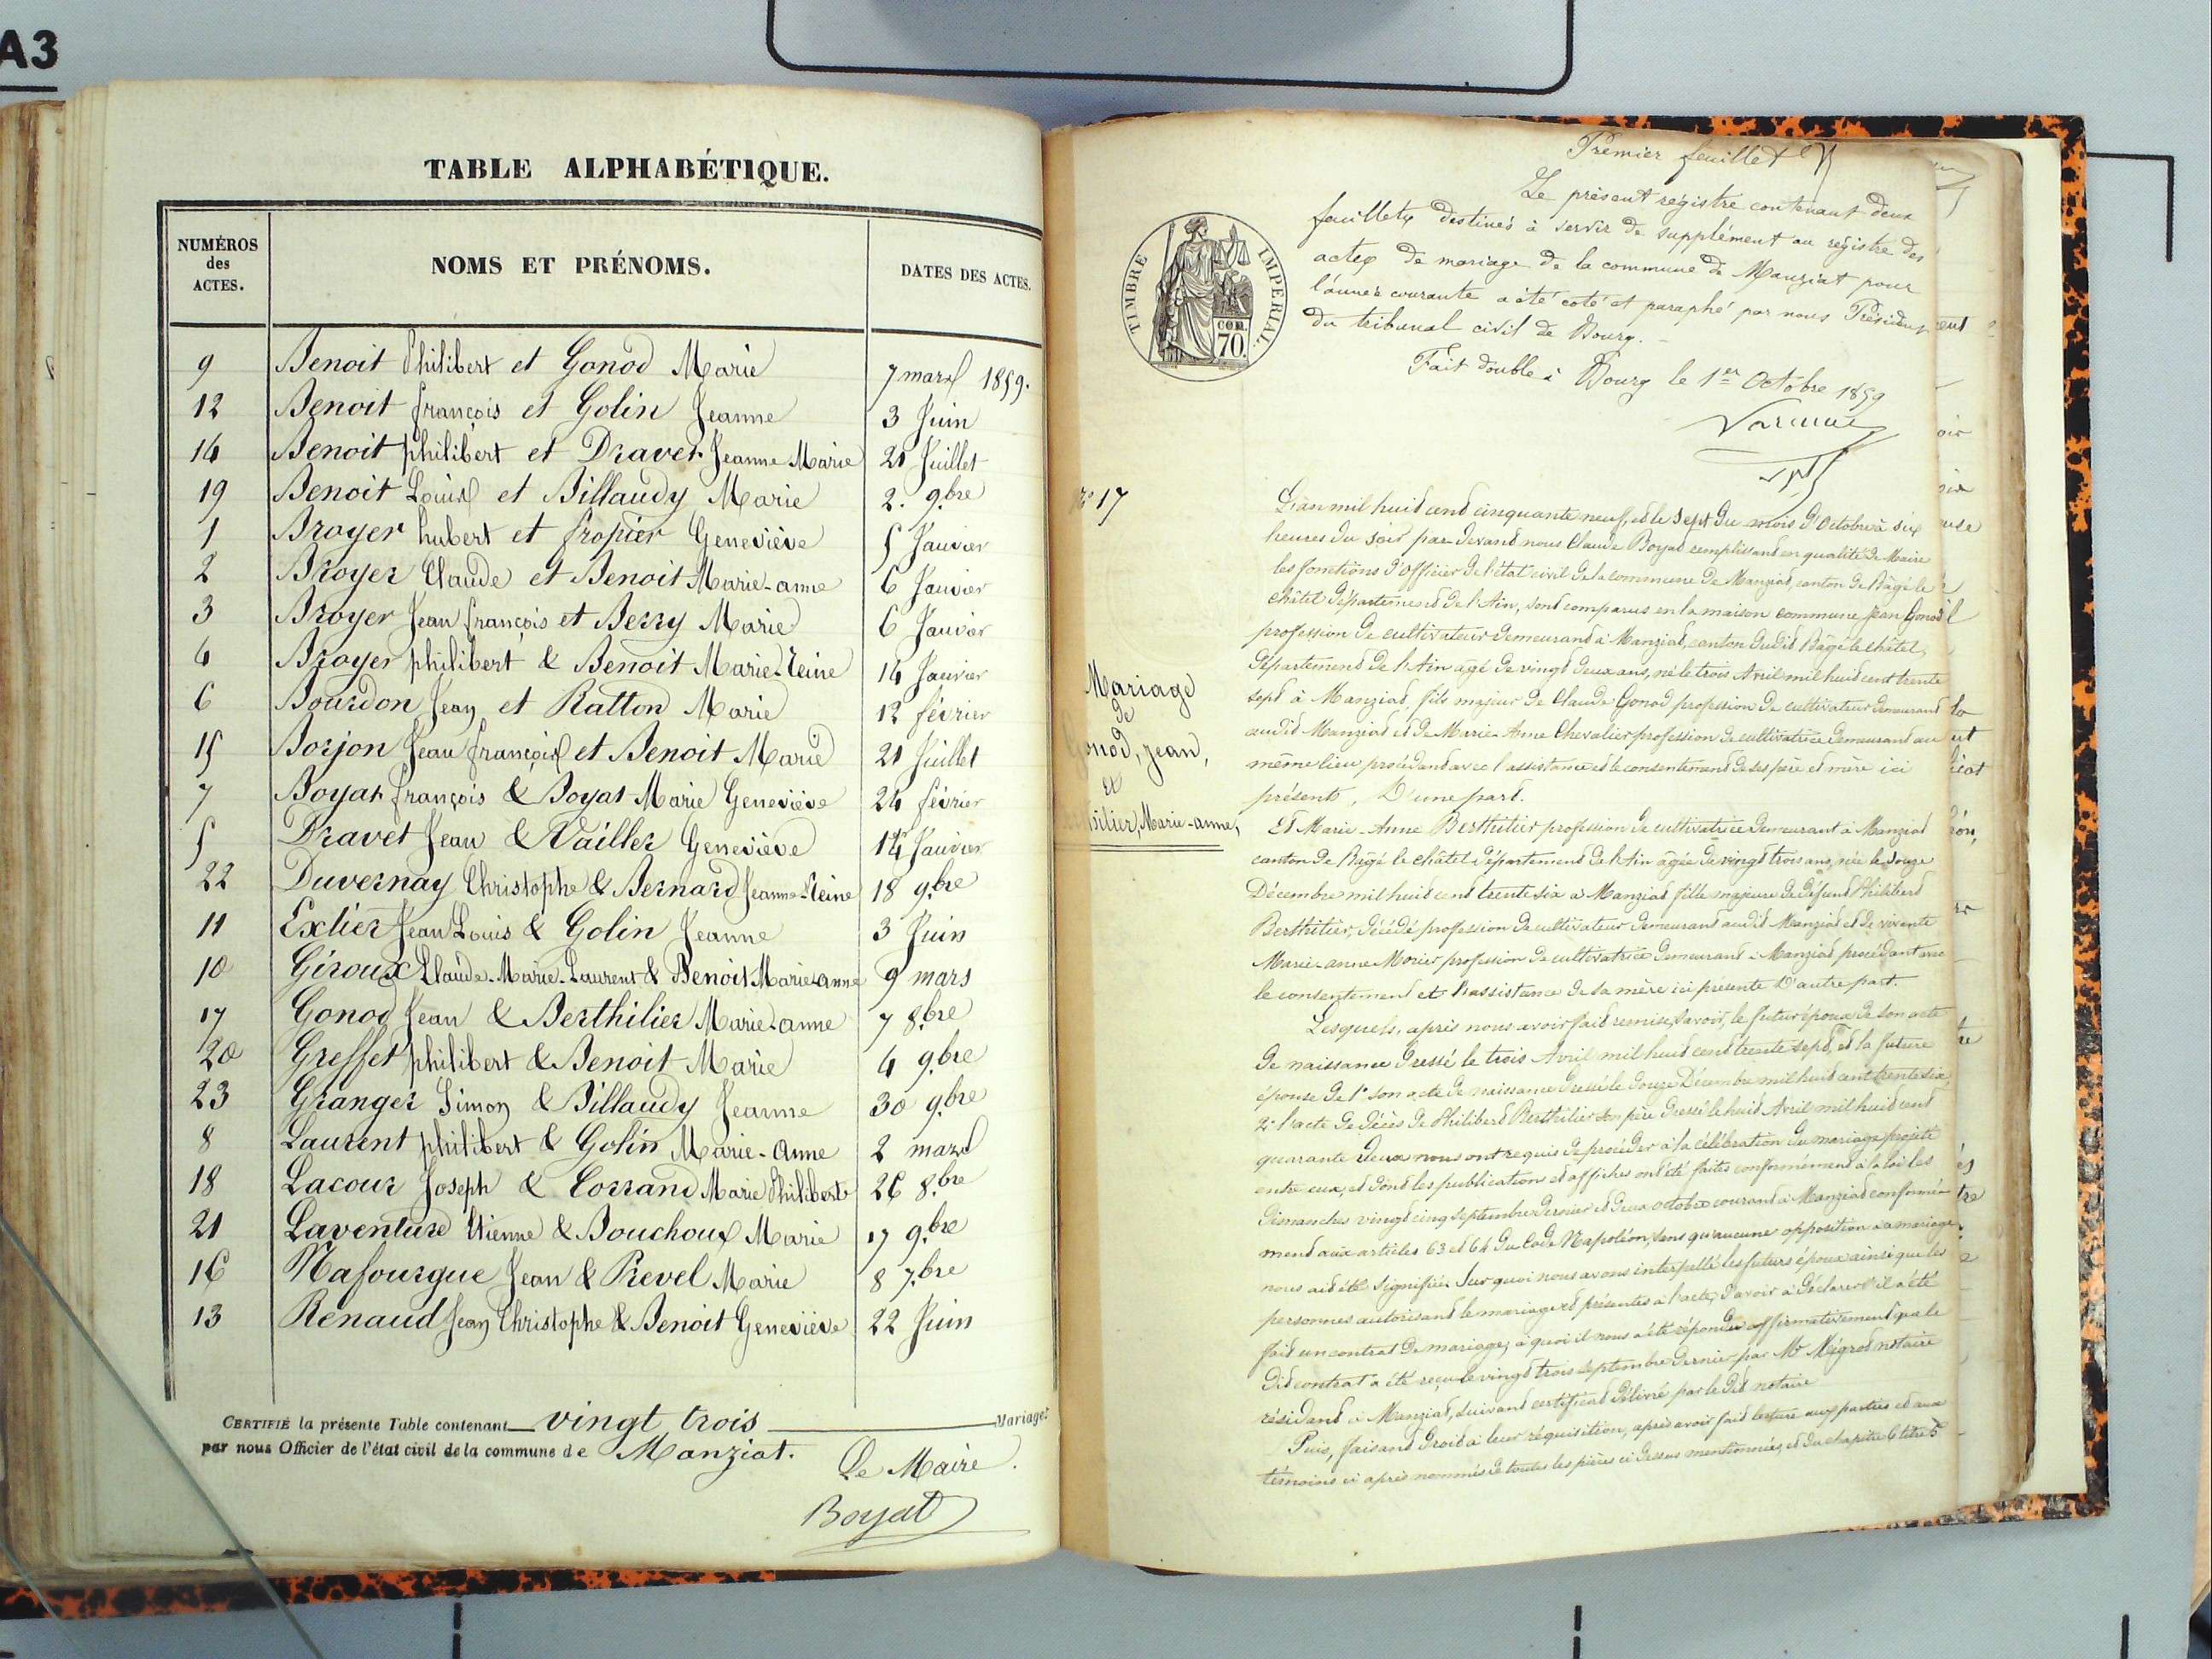 A3
TABLE ALPHABÉTIQUE.
NUMÉROS des ACTES.
NOMS ET PRÉNOMS.
DATES DES ACTES.
9 Benoit Philibert et Gonod Marie 7 mars 1859.
12 Benoit françois et Golin Jeanne 3 Juin
14 Benoit philibert et Dravet Jeanne Marie 21 Juillet
19 Benoit Louis et Billaudy Marie 2. 9.bre
1 Broyer hubert et fropier Geneviève 5 Janvier
2 Broyer Claude et Benoit Marie-anne 6 Janvier
3 Broyer Jean françois et Berry Marie 6 Janvier
4 Broyer philibert & Benoit Marie-Reine 14 Janvier
6 Bourdon Jean et Ratton Marie 12 février
15 Borjon Jean françois et Benoit Marie 21 Juillet
7 Boyat françois & Boyat Marie Geneviève 24 février
5 Dravet Jean & Vailler Geneviève 14 Janvier
22 Duvernay Christophe & Bernard Jeanne-Reine 18 9.bre
11 Exlier Jean Louis & Golin Jeanne 3 Juin
10 Giroux Claude-Marie-Laurent & Benoit Marie-anne 9 mars
17 Gonod Jean & Berthilier Marie-anne 7 8.bre
20 Greffet philibert & Benoit Marie 4 9.bre
23 Granger Simon & Billaudy Jeanne 30 9.bre
8 Laurent philibert & Golin Marie-Anne 2 mars
18 Lacour Joseph & Corrand Marie Philiberte 26 8.bre
21 Laventure Etienne & Bouchoux Marie 17 9.bre
16 Nafourgue Jean & Prevel Marie 8 7.bre
13 Renaud Jean Christophe & Benoit Geneviève 22 Juin
CERTIFIÉ la présente Table contenant vingt trois Mariages
par nous Officier de l'état civil de la commune de Manziat.
Le Maire.
Boyat
Premier feuillet
Le présent régistre contenant deux
feuillets destinés à servir de supplément au régistre des
actes de mariage de la commune de Manziat pour
l'année courante a été coté et paraphé par nous Président
du tribunal civil de Bourg.
Fait double à Bourg le 1er Octobre 1859
TIMBRE IMPERIAL.
COM.
70.
No 17
Mariage
de
Gonod, Jean,
et
Marie-anne,
L'an mil huit cent cinquante neuf, et le sept du mois d'Octobre à six
heures du soir par devant nous Claude Boyat remplissant en qualité de Maire
les fonctions d'officier de l'état civil de la commune de Manziat, canton de Bâgé le
châtel département de l'Ain, sont comparus en la maison commune Jean Gonod
profession de cultivateur demeurant à Manziat, canton dudit Bâgé le châtel,
département de l'Ain agé de vingt deux ans, né le trois Avril mil huit cent trente
sept à Manziat, fils majeur de Claude Gonod profession de cultivateur demeurant
audit Manziat et de Marie-Anne Chevalier profession de cultivatrice demeurant au
même lieu procédant avec l'assistance et le consentement de ses père et mère ici
présents, D'une part.
Et Marie-Anne Berthilier profession de cultivatrice demeurant à Manziat
canton de Bâgé le châtel département de l'Ain âgée de vingt trois ans, née le douze
Décembre mil huit cent trente six à Manziat fille majeure de défunt Philibert
Berthilier, décédé profession de cultivateur demeurant audit Manziat et de vivante
Marie-anne Morier profession de cultivatrice demeurant à Manziat procédant avec
le consentement et l'assistance de sa mère ici présente D'autre part.
Lesquels, après nous avoir fait remise, savoir, le futur époux de son acte
de naissance dressé le trois Avril mil huit cent trente sept, et la future
épouse de 1° son acte de naissance dressé le douze Décembre mil huit cent trente six,
2° l'acte de décès de Philibert Berthilier son père dressé le huit Avril mil huit cent
quarante deux nous ont requis de procéder à la célébration du mariage projeté
entre eux, et dont les publication et affiches ont été faites conformément à la loi les
dimanches vingt cinq septembre dernier et deux octobre courant à Manziat conformé-
ment aux articles 63 et 64 du Code Napoléon, sans qu'aucune opposition à ce mariage
nous ait été signifiée. Sur quoi nous avons interpellé les futurs époux ainsi que les
personnes autorisant le mariage et présentes à l'acte, d'avoir à déclarer s'il a été
fait un contrat de mariage, à quoi il nous a été répondu affirmativement que le
dit contrat a été reçu le vingt trois septembre dernier par Me Mégrod notaire
résidant à Manziat, suivant certificat délivré par le dit notaire
Puis, faisant droit à leur réquisition, après avoir fait lecture aux parties et aux
témoins ci après nommés de toutes les pièces ci dessus mentionnées, et du chapitre 6 titre 5